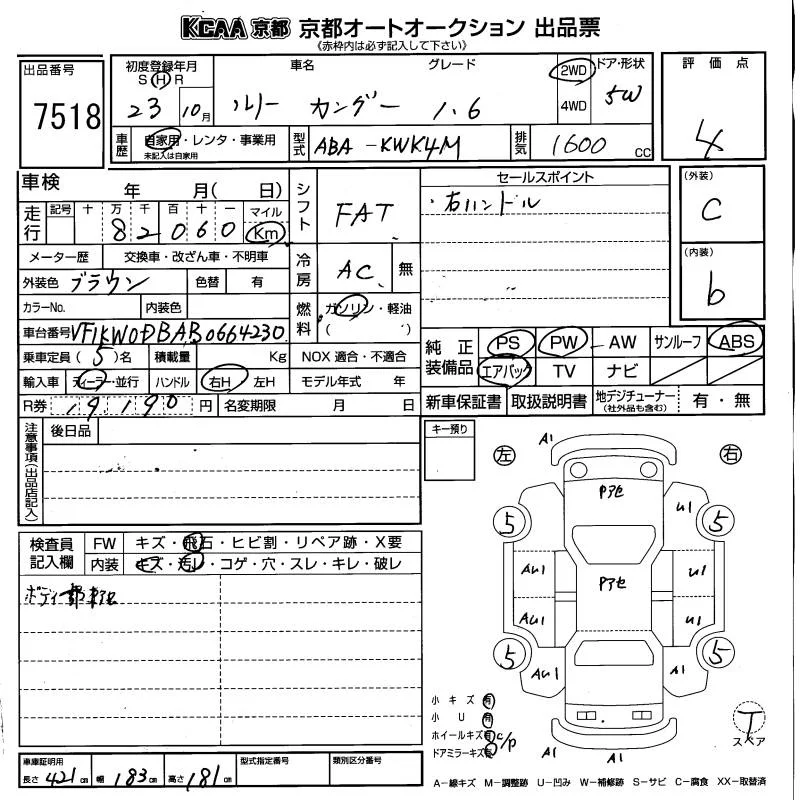 KCAA 京都 京都オートオークション 出品票
《赤枠内は必ず記入して下さい》
出品番号
7518
初度登録年月
S H R
23 10月
車名 グレード
ルノー カングー 1.6
2WD
4WD
ドア・形状
5W
評価点
4
車歴
自家用・レンタ・事業用
未記入は自家用
型式
ABA-KWK4M
排気
1600 cc
車検 年 月( 日)
走行
記号 十 万 千 百 十 一 マイル
8 2 0 6 0 Km
シフト
FAT
セールスポイント
・右ハンドル
(外装)
C
(内装)
b
メーター歴 交換車・改ざん車・不明車
外装色 ブラウン 色替 有
冷房
AC 無
カラーNo. 内装色
燃料
ガソリン・軽油
( )
車台番号 VF1KW0DBAB0664230
乗車定員 (5)名 積載量 Kg NOX 適合・不適合
輸入車 ディーラー・並行 ハンドル 右H 左H モデル年式 年
R券 19190 円 名変期限 月 日
純正装備品
PS PW AW サンルーフ ABS
エアバック TV ナビ
新車保証書 取扱説明書 地デジチューナー (社外品も含む) 有・無
注意事項(出品店記入)
後日品
キー預り
左 右
A1
Pアセ
U1
5 5
AU1
Pアセ
U1
AU1
U1
5 5
AU1
A1
A1
A1
検査員記入欄
FW キズ・飛石・ヒビ割・リペア跡・X要
内装 キズ・汚レ・コゲ・穴・スレ・キレ・破レ
小キズ 有
小 U 有
ホイールキズ 有 c/p
ドアミラーキズ 有
T
スペア
車庫証明用
長さ 421cm 幅 183cm 高さ 181cm
型式指定番号
類別区分番号
A-線キズ M-調整跡 U-凹み W-補修跡 S-サビ C-腐食 XX-取替済